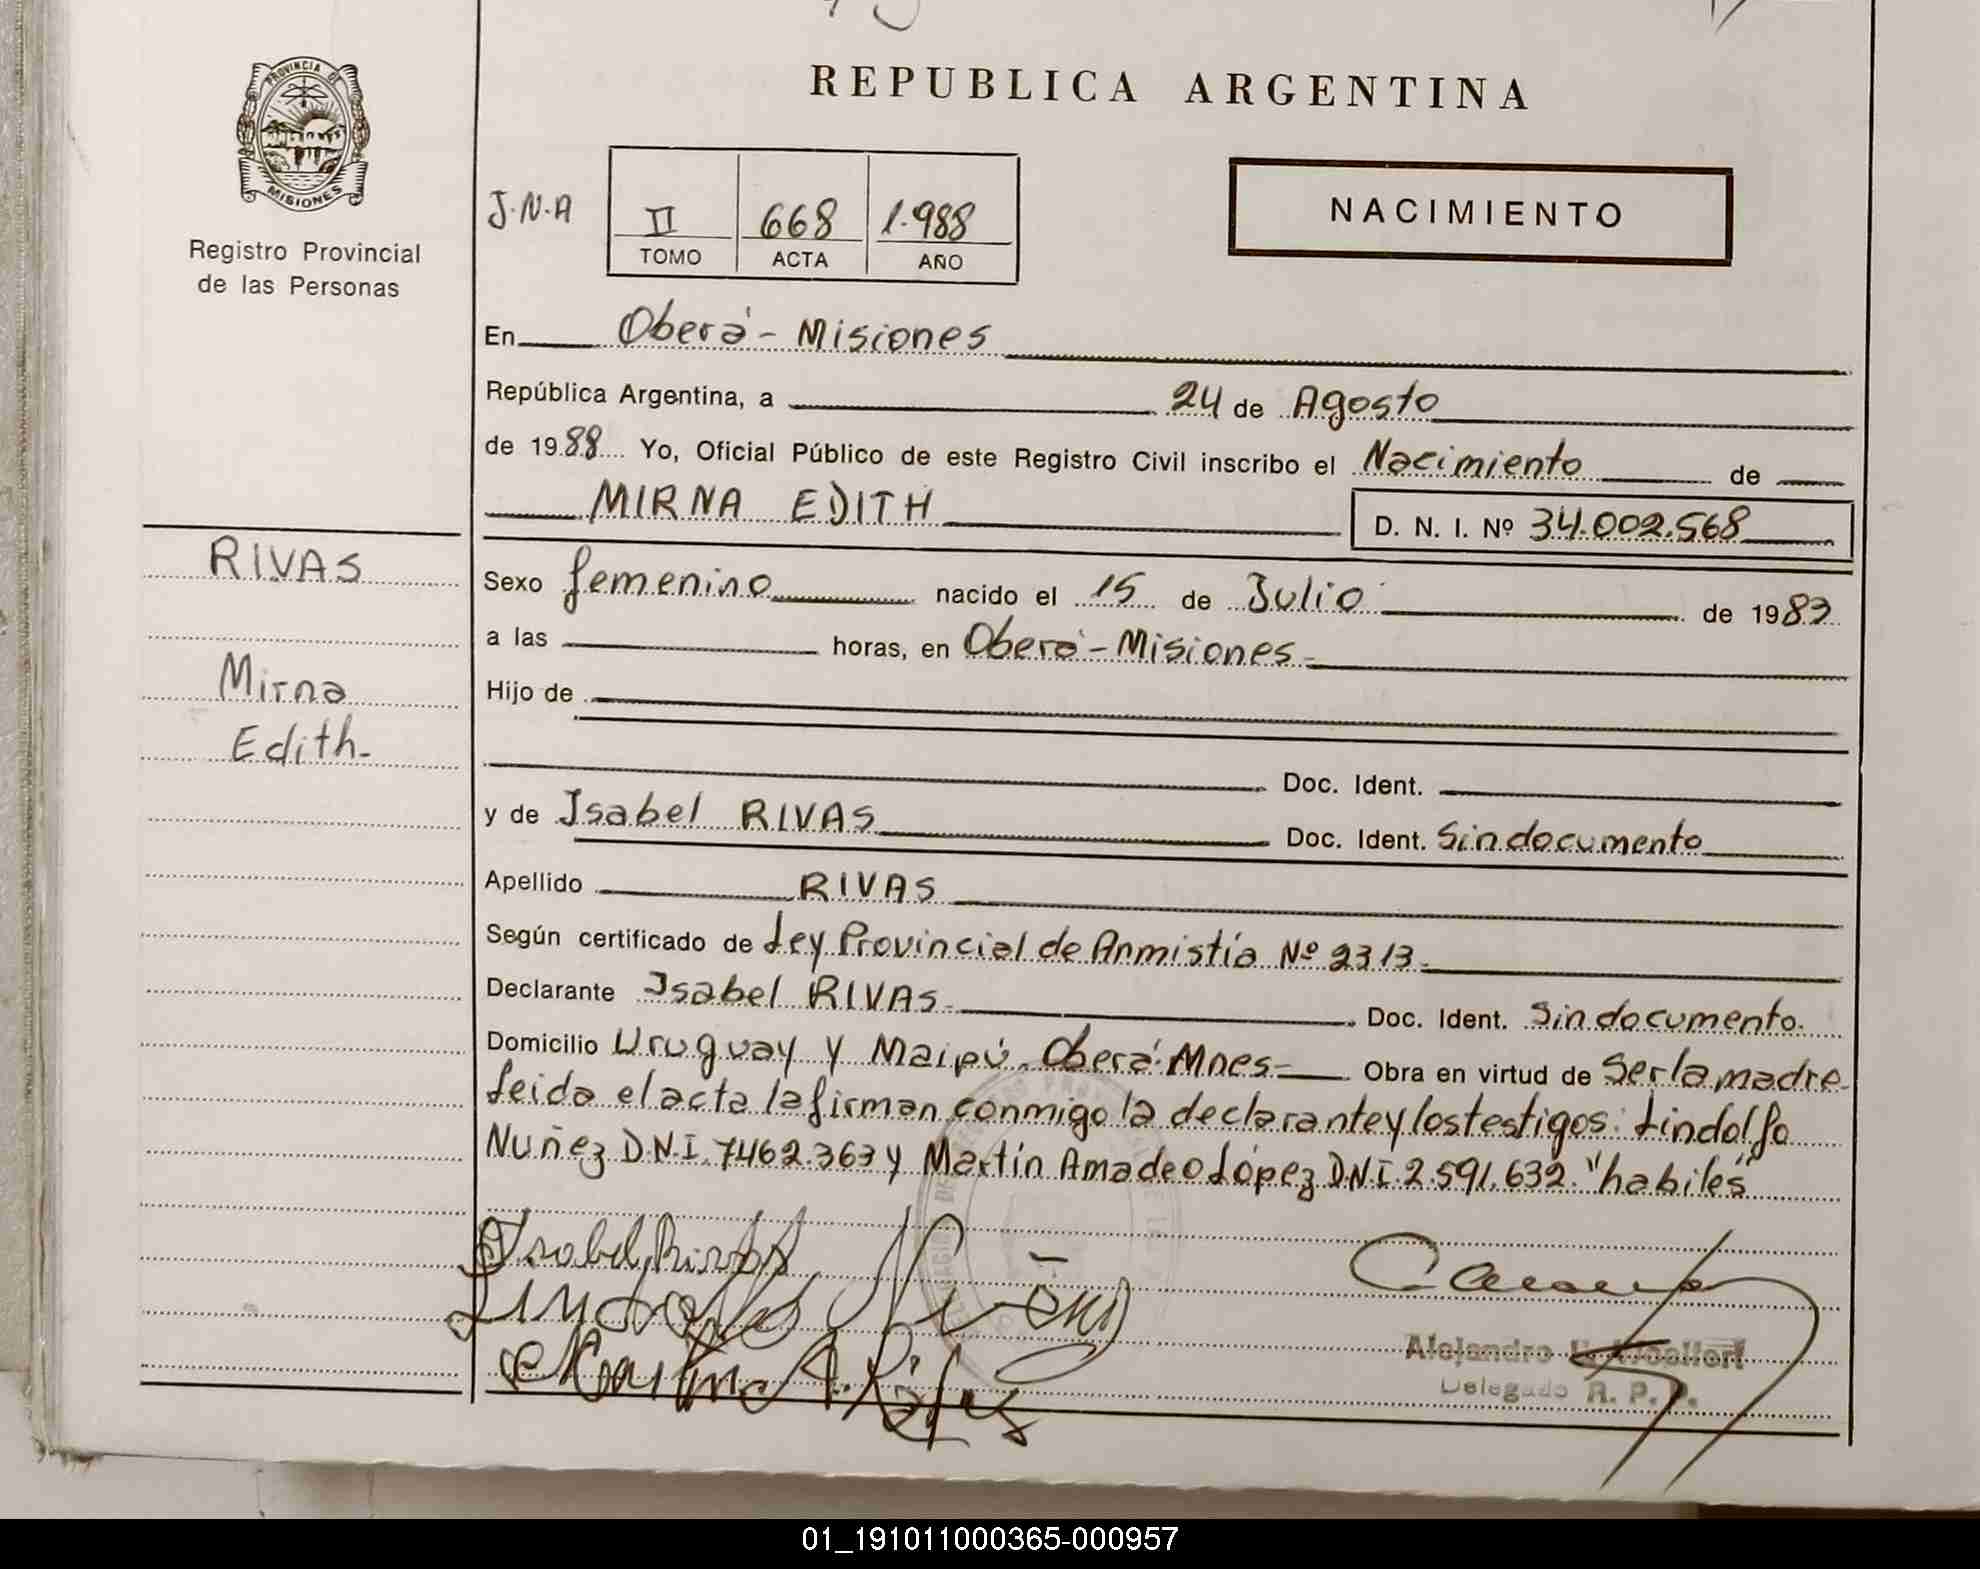 REPUBLICA ARGENTINA
PROVINCIA DE
MISIONES
Registro Provincial
de las Personas
J.N.A
II 668 1.988
TOMO ACTA AÑO
NACIMIENTO
En Oberá - Misiones
República Argentina, a 24 de Agosto
de 1988 Yo, Oficial Público de este Registro Civil inscribo el Nacimiento de
MIRNA EDITH
D. N. I. Nº 34.002.568
RIVAS
Mirna
Edith-
Sexo femenino nacido el 15 de Julio de 1983
a las horas, en Oberá - Misiones-
Hijo de
Doc. Ident.
y de Isabel RIVAS Doc. Ident. Sin documento
Apellido RIVAS
Según certificado de Ley Provincial de Anmistía Nº 2313-
Declarante Isabel RIVAS- Doc. Ident. Sin documento.
Domicilio Uruguay y Maipú. Oberá-Mnes- Obra en virtud de Ser la madre-
Leida el acta la firman conmigo la declarante y los testigos: Lindolfo
Nuñez D.N.I. 7462.363 y Martín Amadeo López D.N.I. 2.591.632. "habiles"
Isabel Rivas
Lindolfo Núñez
Martin A. López
Alejandro
Delegado R. P. P.
01_191011000365-000957